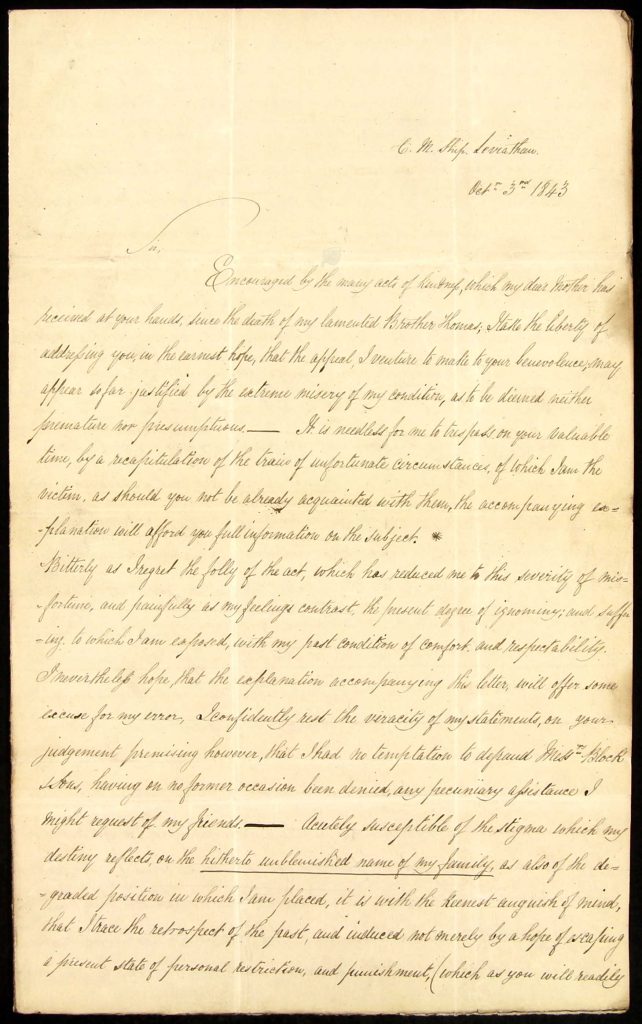 C. M. Ship. Leviathan.
Octr 3rd 1843
Sir,
Encouraged by the many acts of kindness, which my dear Mother has
received at your hands, since the death of my lamented Brother Thomas; I take the liberty of
addressing you, in the earnest hope, that the appeal, I venture to make to your benevolence, may
appear so far justified by the extreme misery of my condition, as to be deemed neither
premature nor presumptuous. — It is needless for me to trespass on your valuable
time, by a recapitulation of the train of unfortunate circumstances, of which I am the
victim, as should you not be already acquainted with them, the accompanying ex-
-planation will afford you full information on the subject. *
Bitterly as I regret the folly of the act, which has reduced me to this severity of mis-
-fortune, and painfully as my feelings contrast, the present degree of ignominy; and suffer-
-ing to which I am exposed, with my past condition of comfort and respectability.
I nevertheless hope, that the explanation accompanying this letter, will offer some
excuse for my error, I confidently rest the veracity of my statements, on your
judgement premising however, that I had no temptation to defraud Messrs Block
& Sons, having on no former occasion been denied, any pecuniary assistance I
might request of my friends. — Acutely susceptible of the stigma which my
destiny reflects, on the hitherto unblemished name of my family, as also of the de-
-graded position in which I am placed, it is with the keenest anguish of mind,
that I trace the retrospect of the past, and induced not merely by a hope of escaping
a present state of personal restriction, and punishment, (which as you will readily